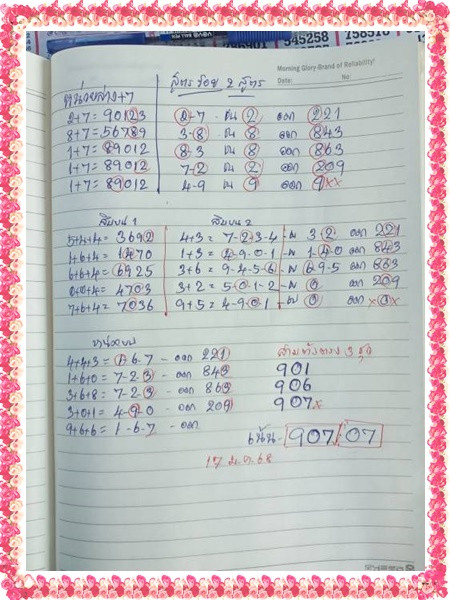 545258
Morning Glory-Brand of Reliability!
Date: No:
หน่วยล่าง+7
สูตร ร้อย 2 สูตร
2+7 = 90123
2-7 บน 2 ออก 221
8+7 = 56789
3-8 บน 8 ออก 843
1+7 = 89012
8-3 บน 8 ออก 863
1+7 = 89012
7-2 บน 2 ออก 209
1+7 = 89012
4-9 บน 9 ออก 9xx
สิบบน 1
สิบบน 2
5+4+4 = 3692
4+3 = 7-2-3-4 บน 3 2 ออก 221
1+6+4 = 1470
1+3 = 4-9-0-1 บน 1-4-0 ออก 843
6+6+4 = 6925
3+6 = 9-4-5-6 บน 6-9-5 ออก 863
0+0+4 = 4703
3+2 = 5-0-1-2 บน 0 ออก 209
7+6+4 = 7036
9+5 = 4-9-0-1 บน 0 ออก x0x
หน่วยบน
4+4+3 = 1-6-7 - ออก 221
1+6+0 = 7-2-3 - ออก 843
3+6+8 = 7-2-3 - ออก 863
3+0+1 = 4-9-0 - ออก 209
9+6+6 = 1-6-7 - ออก
สามตัวตรง 3 ชุด
901
906
907x
เน้น - 907 07
17 ม.ค. 68